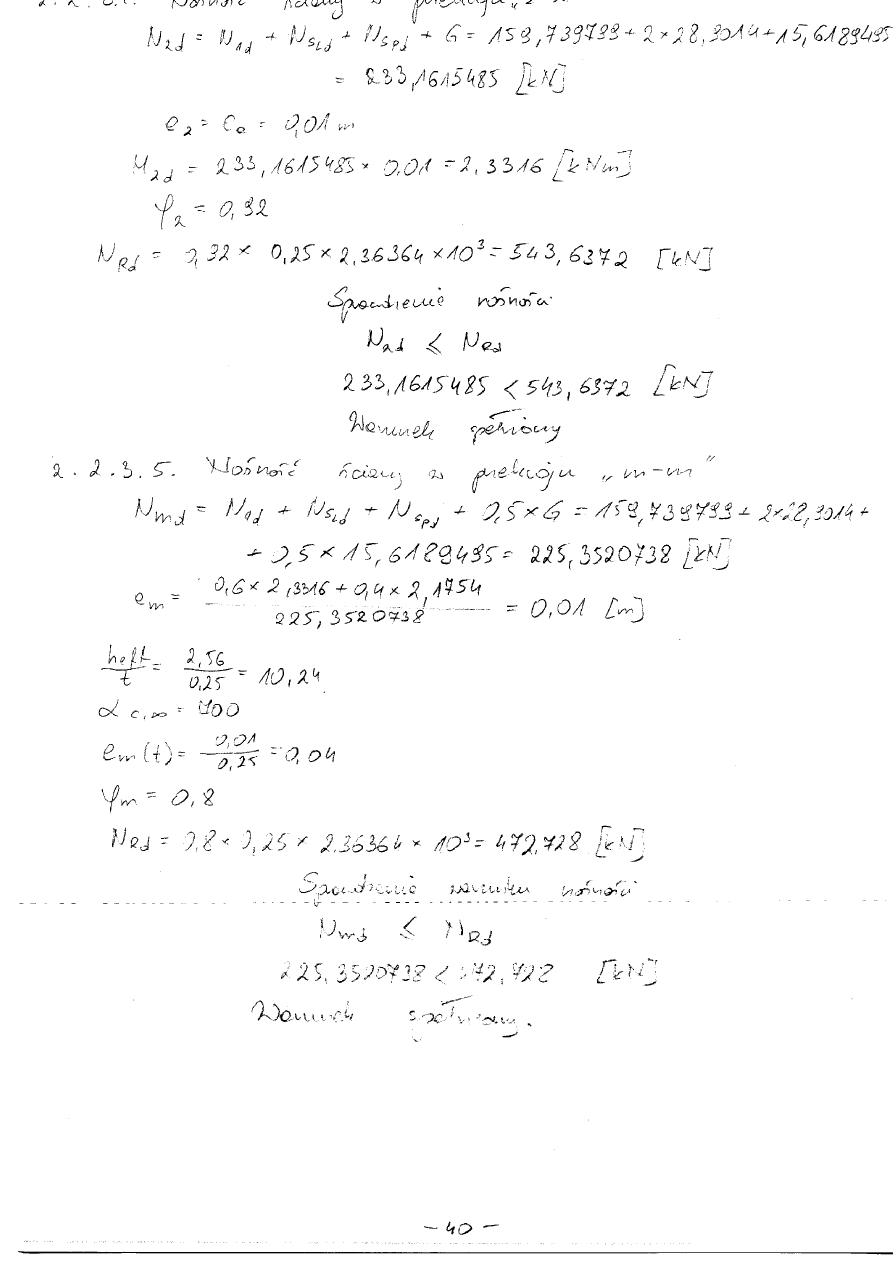 Nośność ściany w przekroju „2
N2d = N1d + NSLd + NSpd + G = 159,739799 + 2 × 28,9014 + 15,6189495
= 233,1615485 [kN]
e2 = ea = 0,01 m
M2d = 233,1615485 × 0,01 = 2,3316 [kNm]
φ2 = 0,92
NRd = 0,92 × 0,25 × 2,36364 × 10³ = 543,6372 [kN]
Sprawdzenie nośności
N2d ≤ NRd
233,1615485 < 543,6372 [kN]
Warunek spełniony
2.2.3.5. Nośność ściany w przekroju „m-m”
Nmd = N1d + NSLd + NSpd + 0,5 × G = 159,739799 + 2×28,9014 +
+ 0,5 × 15,6189495 = 225,3520738 [kN]
em = 0,6 × 2,3316 + 0,4 × 2,1754 / 225,3520738 = 0,01 [m]
heff / t = 2,56 / 0,25 = 10,24
αc,∞ = 700
em(t) = 0,01 / 0,25 = 0,04
φm = 0,8
NRd = 0,8 × 0,25 × 2,36364 × 10³ = 472,728 [kN]
Sprawdzenie warunku nośności
Nmd ≤ NRd
225,3520738 < 472,728 [kN]
Warunek spełniony.
- 40 -